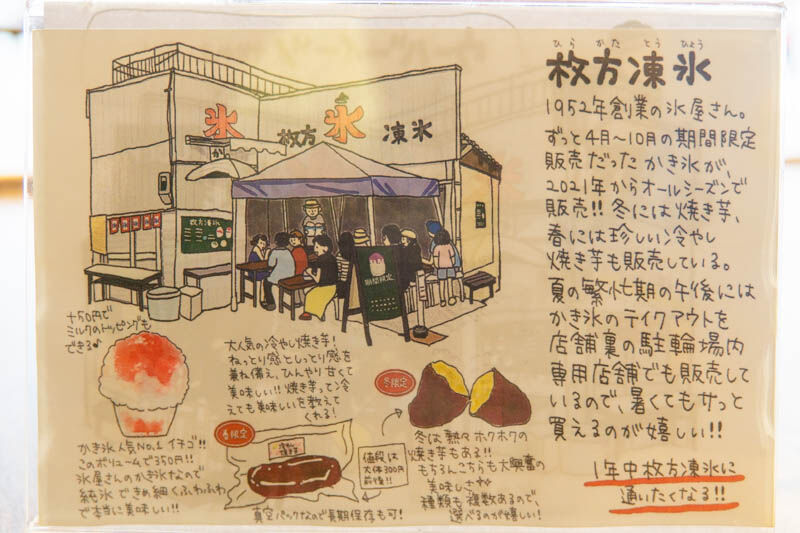 ひらかたとうひょう
枚方凍氷
1952年創業の氷屋さん。
ずっと4月〜10月の期間限定
販売だったかき氷が、
2021年からオールシーズンで
販売!! 冬には焼き芋、
春には珍しい冷やし
焼き芋も販売している。
夏の繁忙期の午後には
かき氷のテイクアウトを
店舗裏の駐輪場内
専用店舗でも販売して
いるので、暑くてもサッと
買えるのが嬉しい!!
1年中枚方凍氷に
通いたくなる!!
氷
枚方 氷 凍氷
か
枚方凍氷
期間限定
+50円で
ミルクのトッピングも
できる♪
かき氷人気No.1 イチゴ!!
このボリュームで350円!!
氷屋さんのかき氷なので
純氷できめ細くふわふわ
で本当に美味しい!!
大人気の冷やし焼き芋!
ねっとり感としっとり感を
兼ね備え、ひんやり甘くて
美味しい!! 焼き芋って冷
えても美味しいを教えて
くれる!
春限定
冷やし
焼き芋
値段は
大体300円
前後!!
真空パックなので長期保存も可!
冬限定
冬は熱々ホクホクの
焼き芋もある!!
もちろんこちらも大興奮の
美味しさね
種類も複数あるので、
選べるのが嬉しい!